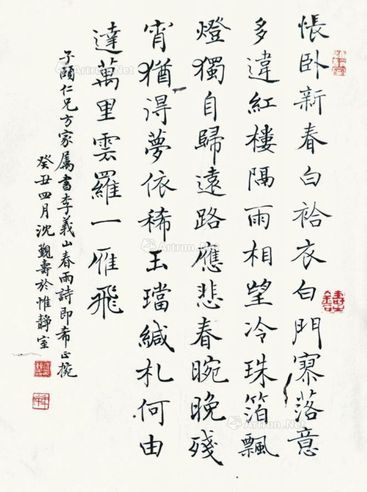 悵卧新春白袷衣白門寥落意
多違紅樓隔雨相望冷珠箔飄
燈獨自歸遠路應悲春晼晚殘
宵猶得夢依稀玉璫緘札何由
達萬里雲羅一雁飛
子頤仁兄方家属書李義山春雨詩即希正捥
癸丑四月沈覲壽於惟靜室